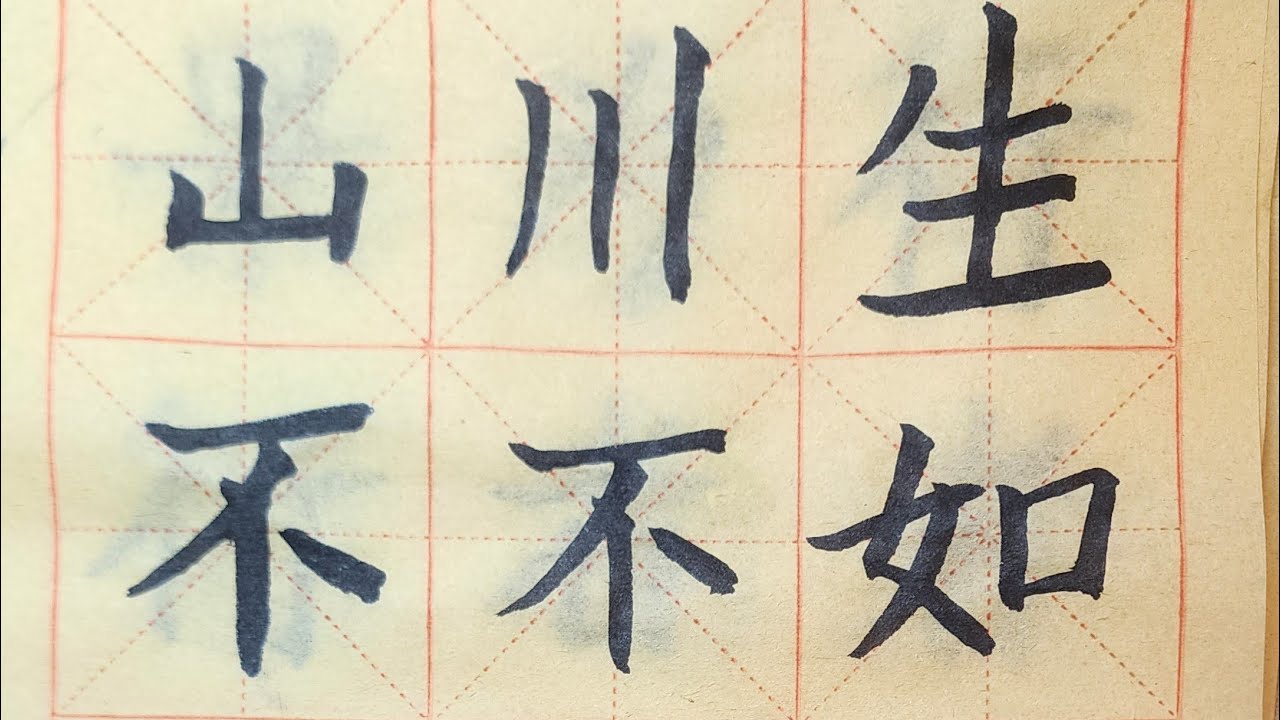 山川生
不不如